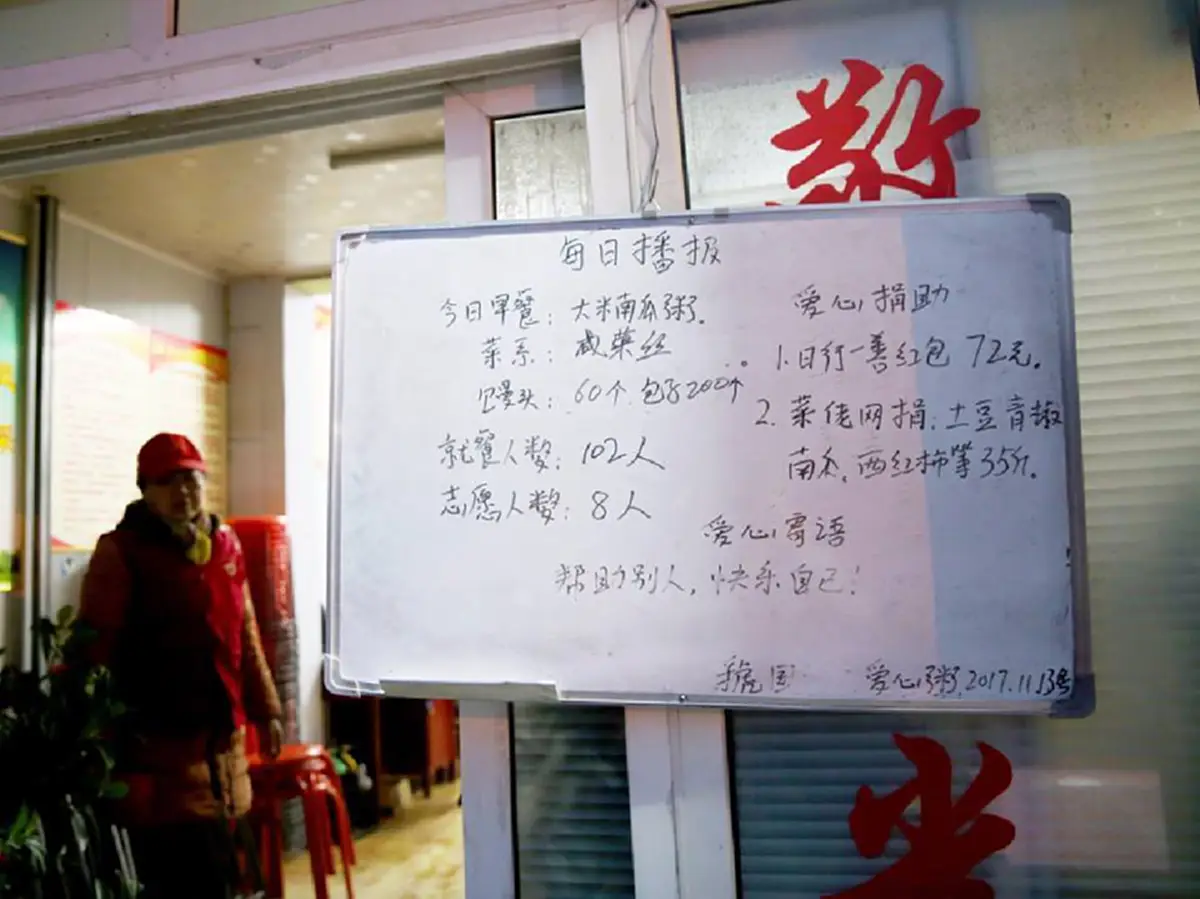 每日播报
今日早餐：大米南瓜粥.
菜系：咸菜丝
馒头：60个 包子200个
就餐人数：102人
志愿人数：8人
爱心捐助
1.日行一善红包 72元.
2.菜佬网捐：土豆青椒
南瓜.西红柿等35斤.
爱心寄语
帮助别人，快乐自己！
爱心粥.2017.11.13号